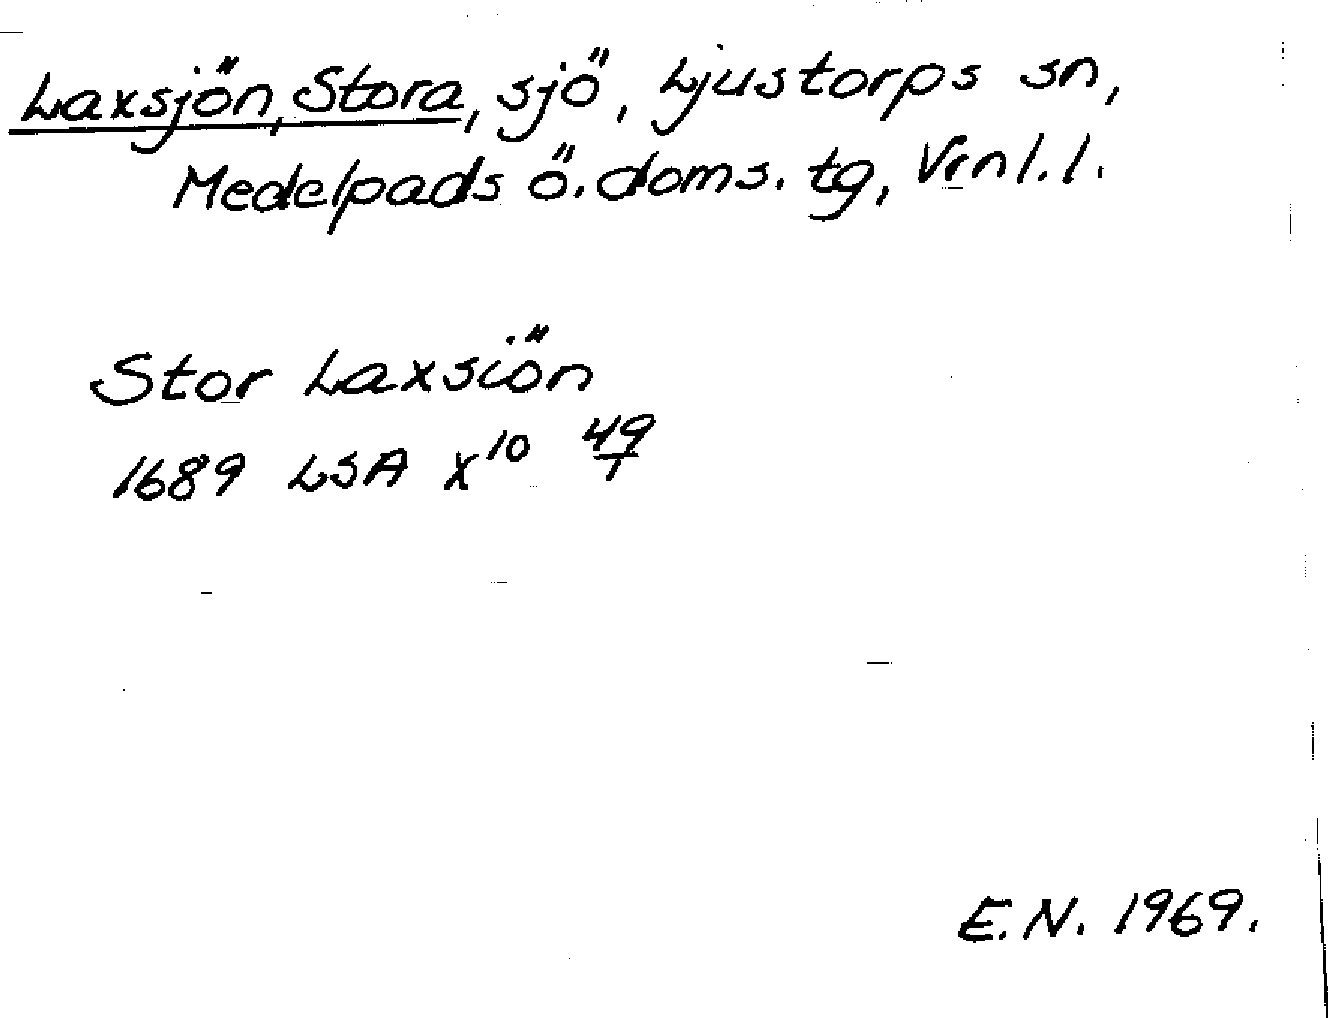 Laxsjön, Stora, sjö, Ljustorps sn,
Medelpads ö. doms. tg, Vrnl. l.
Stor Laxsiön
1689 LSA X¹⁰ 49/1
E.N. 1969.